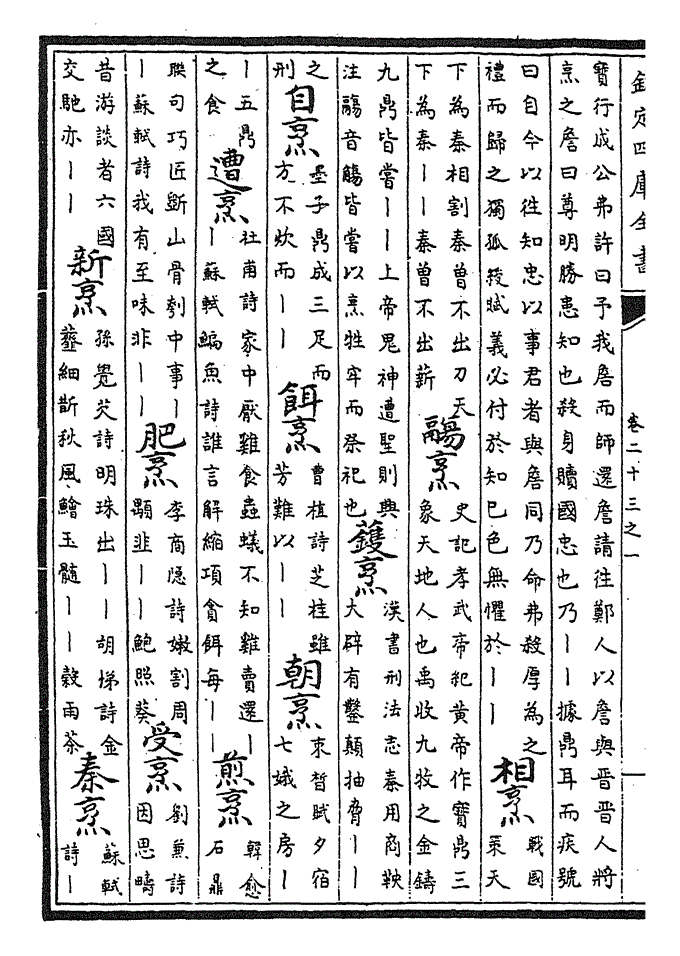 欽定四庫全書
卷二十三之一
寶行成公弗許曰予我詹而師還詹請往鄭人以詹與晉晉人將
烹之詹曰尊明勝患知也殺身贖國忠也乃丨丨據鼎耳而疾號
曰自今以往知忠以事君者與詹同乃命弗殺厚為之
禮而歸之獨孤綬賦義必付於知己色無懼於丨丨
相烹
戰國
策天
下為秦相割秦曾不出刀天
下為秦丨丨秦曾不出薪
鬺烹
史記孝武帝紀黃帝作寶鼎三
象天地人也禹收九牧之金鑄
九鼎皆嘗丨丨上帝鬼神遭聖則興
注鬺音觴皆嘗以烹牲牢而祭祀也
鑊烹
漢書刑法志秦用商鞅
大辟有鑿顛抽脅丨丨
之
刑
自烹
墨子鼎成三足而
方不炊而丨丨
餌烹
曹植詩芝桂雖
芳難以丨丨
朝烹
束晳賦夕宿
七娥之房丨
丨五鼎
之食
遭烹
杜甫詩家中厭雞食蟲蟻不知雞賣還丨
丨蘇軾鯿魚詩誰言解縮項貪餌每丨丨
煎烹
韓愈
石鼎
聨句巧匠斵山骨刳中事丨
丨蘇軾詩我有至味非丨丨
肥烹
李商隱詩嫩割周
顒韭丨丨鮑照葵
受烹
劉兼詩
因思疇
昔游談者六國
交馳亦丨丨
新烹
孫覺芡詩明珠出丨丨胡梯詩金
虀細斮秋風鱠玉髓丨丨穀雨茶
秦烹
蘇軾
詩丨